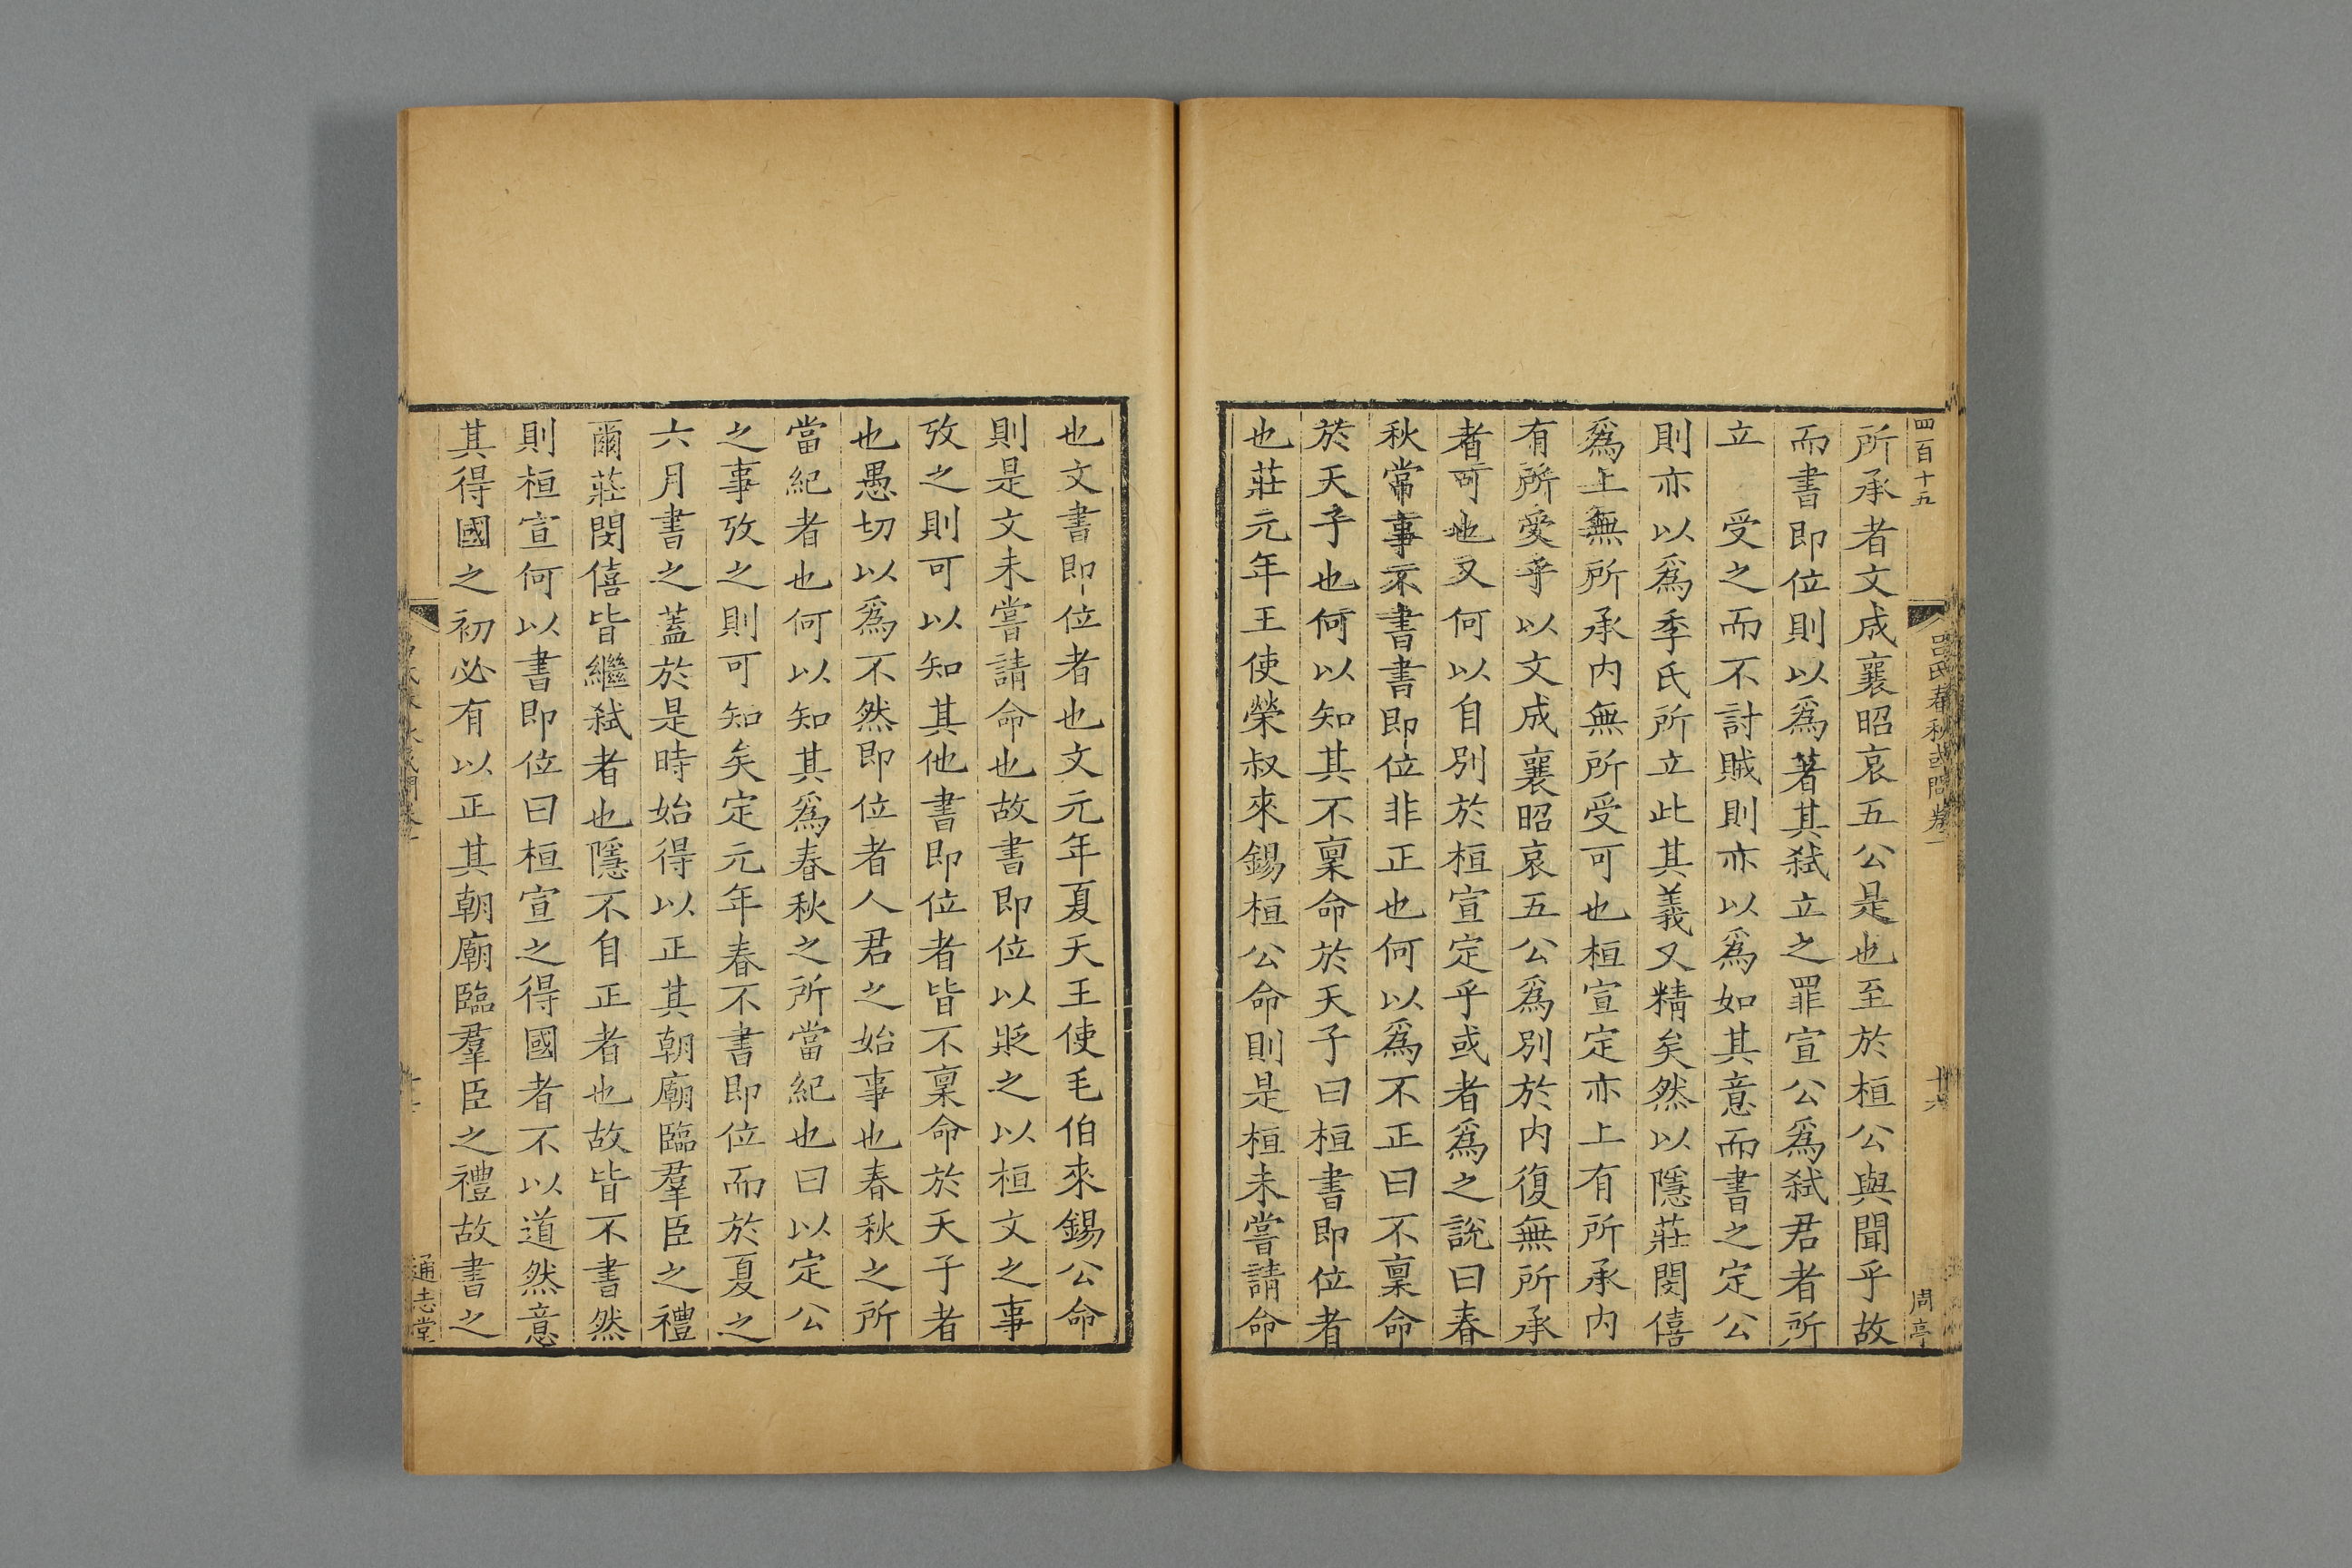 四百十五
呂氏春秋或問卷一
十六
周亭
所承者文成襄昭哀五公是也至於桓公與聞乎故
而書即位則以爲著其弒立之罪宣公爲弒君者所
立 受之而不討賊則亦以爲如其意而書之定公
則亦以爲季氏所立此其義又精矣然以隱莊閔僖
爲上無所承内無所受可也桓宣定亦上有所承内
有所愛乎以文成襄昭哀五公爲別於内復無所承
者可也又何以自別於桓宣定乎或者爲之說曰春
秋常事不書書即位非正也何以爲不正曰不稟命
於天子也何以知其不稟命於天子曰桓書即位者
也莊元年王使榮叔來錫桓公命則是桓未嘗請命
也文書即位者也文元年夏天王使毛伯來錫公命
則是文未嘗請命也故書即位以貶之以桓文之事
攷之則可以知其他書即位者皆不稟命於天子者
也愚切以爲不然即位者人君之始事也春秋之所
當紀者也何以知其爲春秋之所當紀也曰以定公
之事攷之則可知矣定元年春不書即位而於夏之
六月書之蓋於是時始得以正其朝廟臨羣臣之禮
爾莊閔僖皆繼弒者也隱不自正者也故皆不書然
則桓宣何以書即位曰桓宣之得國者不以道然意
其得國之初必有以正其朝廟臨羣臣之禮故書之
通志堂